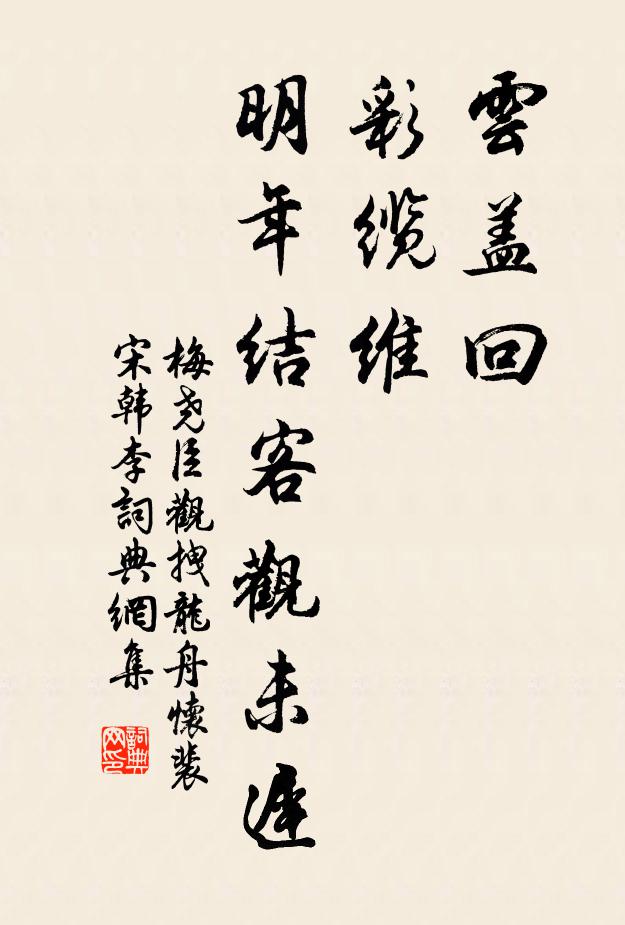 雲盖回
彩缆维
明年结客觀未遲
梅尧臣觀拽龍舟懷裴
宋韩李詞典網集
詞典
网印